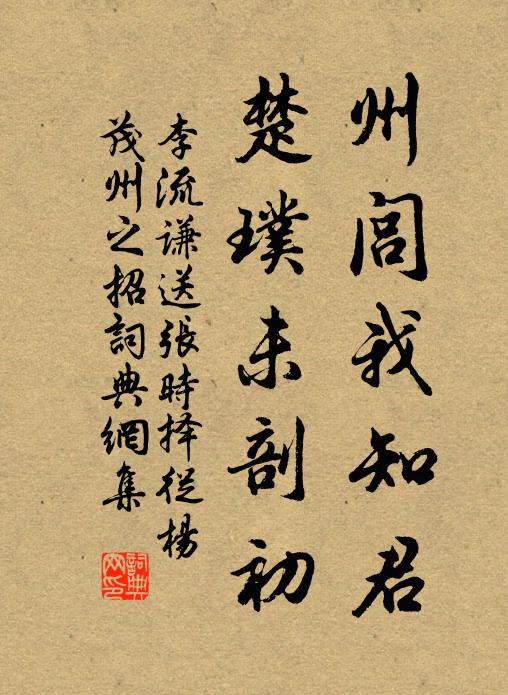 州閭我知君
楚璞未剖初
李流謙送張時择從楊
茂州之招詞典網集
詞典网印